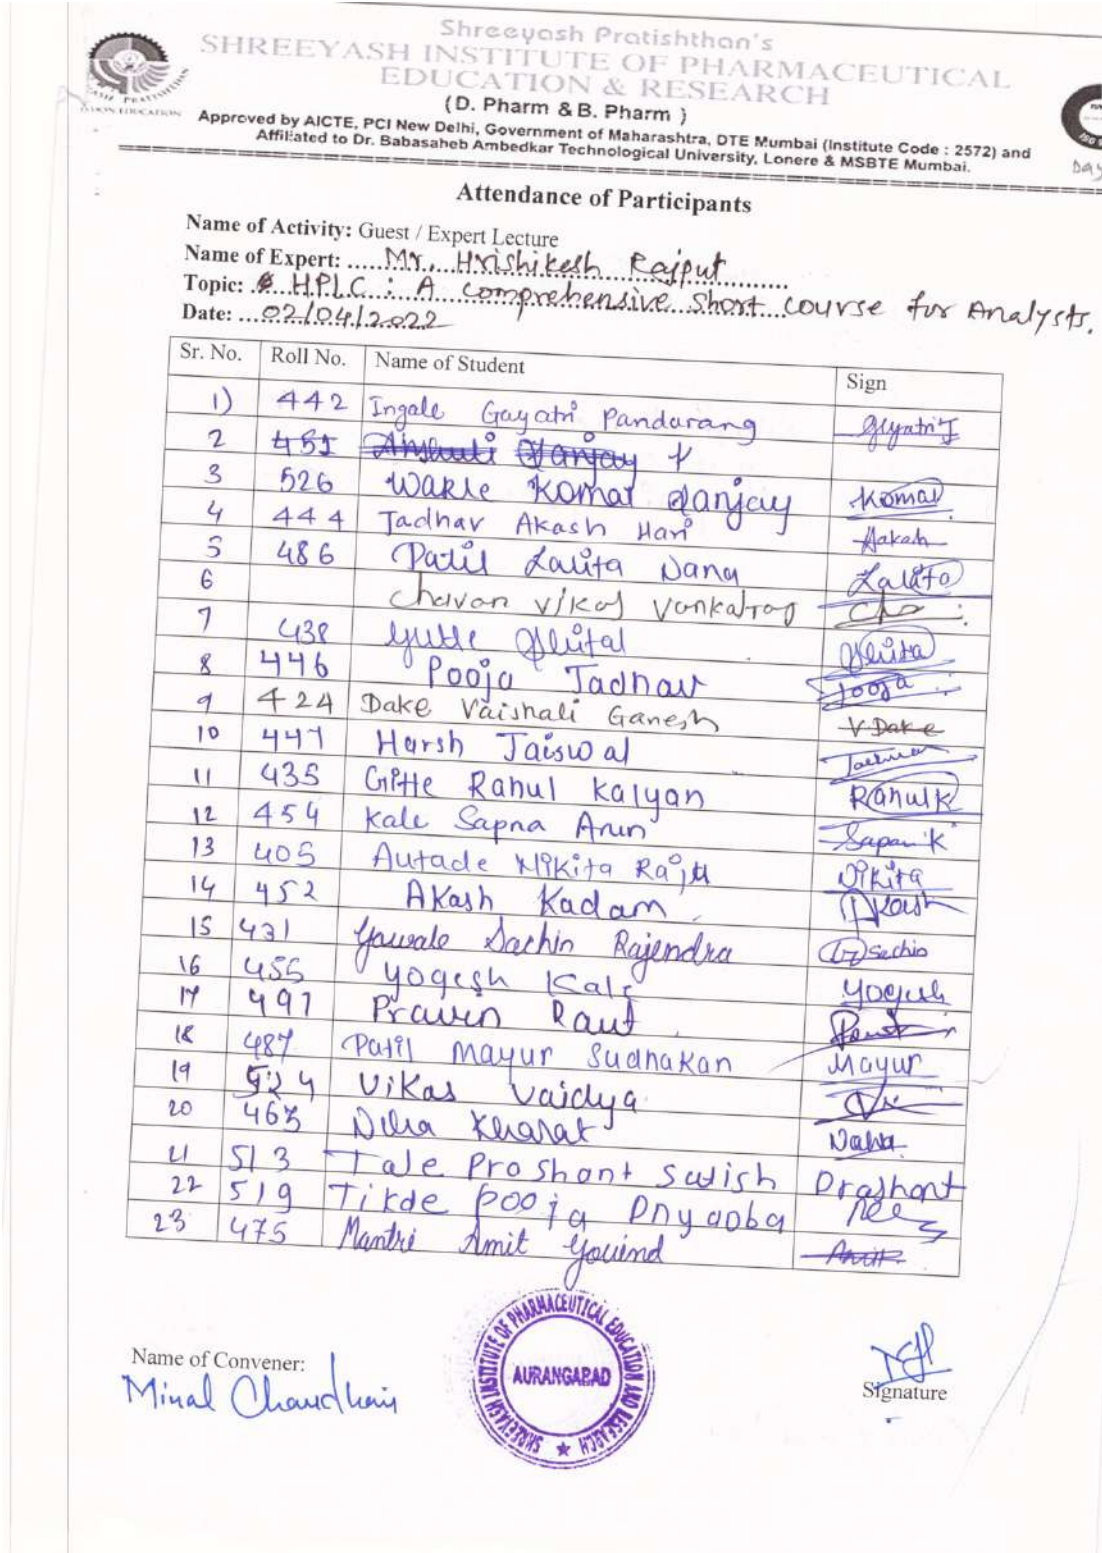 Shreeyash Pratishthan's
SHREEYASH INSTITUTE OF PHARMACEUTICAL
EDUCATION & RESEARCH
(D. Pharm & B. Pharm )
Approved by AICTE, PCI New Delhi, Government of Maharashtra, DTE Mumbai (Institute Code : 2572) and
Affiliated to Dr. Babasaheb Ambedkar Technological University, Lonere & MSBTE Mumbai.
Day
Attendance of Participants
Name of Activity: Guest / Expert Lecture
Name of Expert: ..... Mr. Hrishikesh Rajput
Topic: HPLC : A comprehensive short course for Analysts.
Date: ... 02/04/2022
Sr. No. Roll No. Name of Student Sign
1) 442 Ingale Gayatri Pandurang Gayatri I
2 451 Sanjay
3 526 Wakle Komal Sanjay Komal
4 444 Jadhav Akash Hari Aakash
5 486 Patil Lalita Nana Lalita
6 Chavan Vikas Vankatrao
7 438 Gutte Shital
8 446 Pooja Jadhav Pooja
9 424 Dake Vaishali Ganesh V.Dake
10 447 Harsh Jaiswal
11 435 Gitte Rahul Kalyan Rahul K
12 454 Kale Sapna Arun Sapna K
13 405 Autade Nikita Raju Nikita
14 452 Akash Kadam Akash
15 431 Gawale Sachin Rajendra Sachin
16 455 Yogesh Kale Yogesh
17 497 Pravin Raut
18 487 Patil Mayur Sudhakar Mayur
19 524 Vikas Vaidya
20 463 Neha Kharat Naha
21 513 Tale Proshant Satish Prashant
22 519 Tikde Pooja Dnyaoba
23 475 Mantri Amit Govind Amit
Name of Convener:
Minal Chaudhari
SHREEYASH INSTITUTE OF PHARMACEUTICAL EDUCATION AND RESEARCH
AURANGABAD
Signature